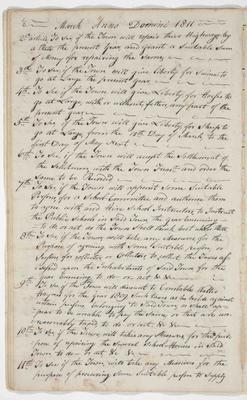 March Anno Domini 1811
2d Article To See if the Town will repair their Highways by
a Rate the present Year, and grant a Suitable Sum
of Money for repairing the Same
3th To See if the Town will give Liberty for Swine to
go at Large the present year
4th To See if the Town will give Liberty for Horses to
go at Large, with or without fetters, any part of the
present year
5th To See if the Town will give Liberty for Sheep to
go at Large from the 12th Day of March, to the
first Day of May Next
6th To See if the Town will accept the Settlement of
the Selectmen with the Town Treasr and order the
Same to be Recorded
7th To See if the Town will appoint Some Suitable
Persons for a School Committee and authorise them
to agree with and hire School Instructors, to Instruct
the Public Schools in Said Town the year ensuing
to do or act as the Town Shall think best
8th To See if the Town will take any Measures for the
Purpose of agreeing with Some Suitable person or
Persons for collector or Collectors to collect the Taxes
upon the Inhabitants of Said Town for the
year ensuing to do or act &c
9th To See if the Town will discount to Constable
for the year 1809 Such taxes as he held against
Said Town
pear to be unable to pay the Same, or that are un-
reasonably taxed to do or act &c
10th To See if the Town will take any Measures for the pur-
pose of repairing the Several School Houses in Said
Town to do or act &c
11th To See if the Town will take any Measures for the
purpose of procuring Some Suitable person to Supply